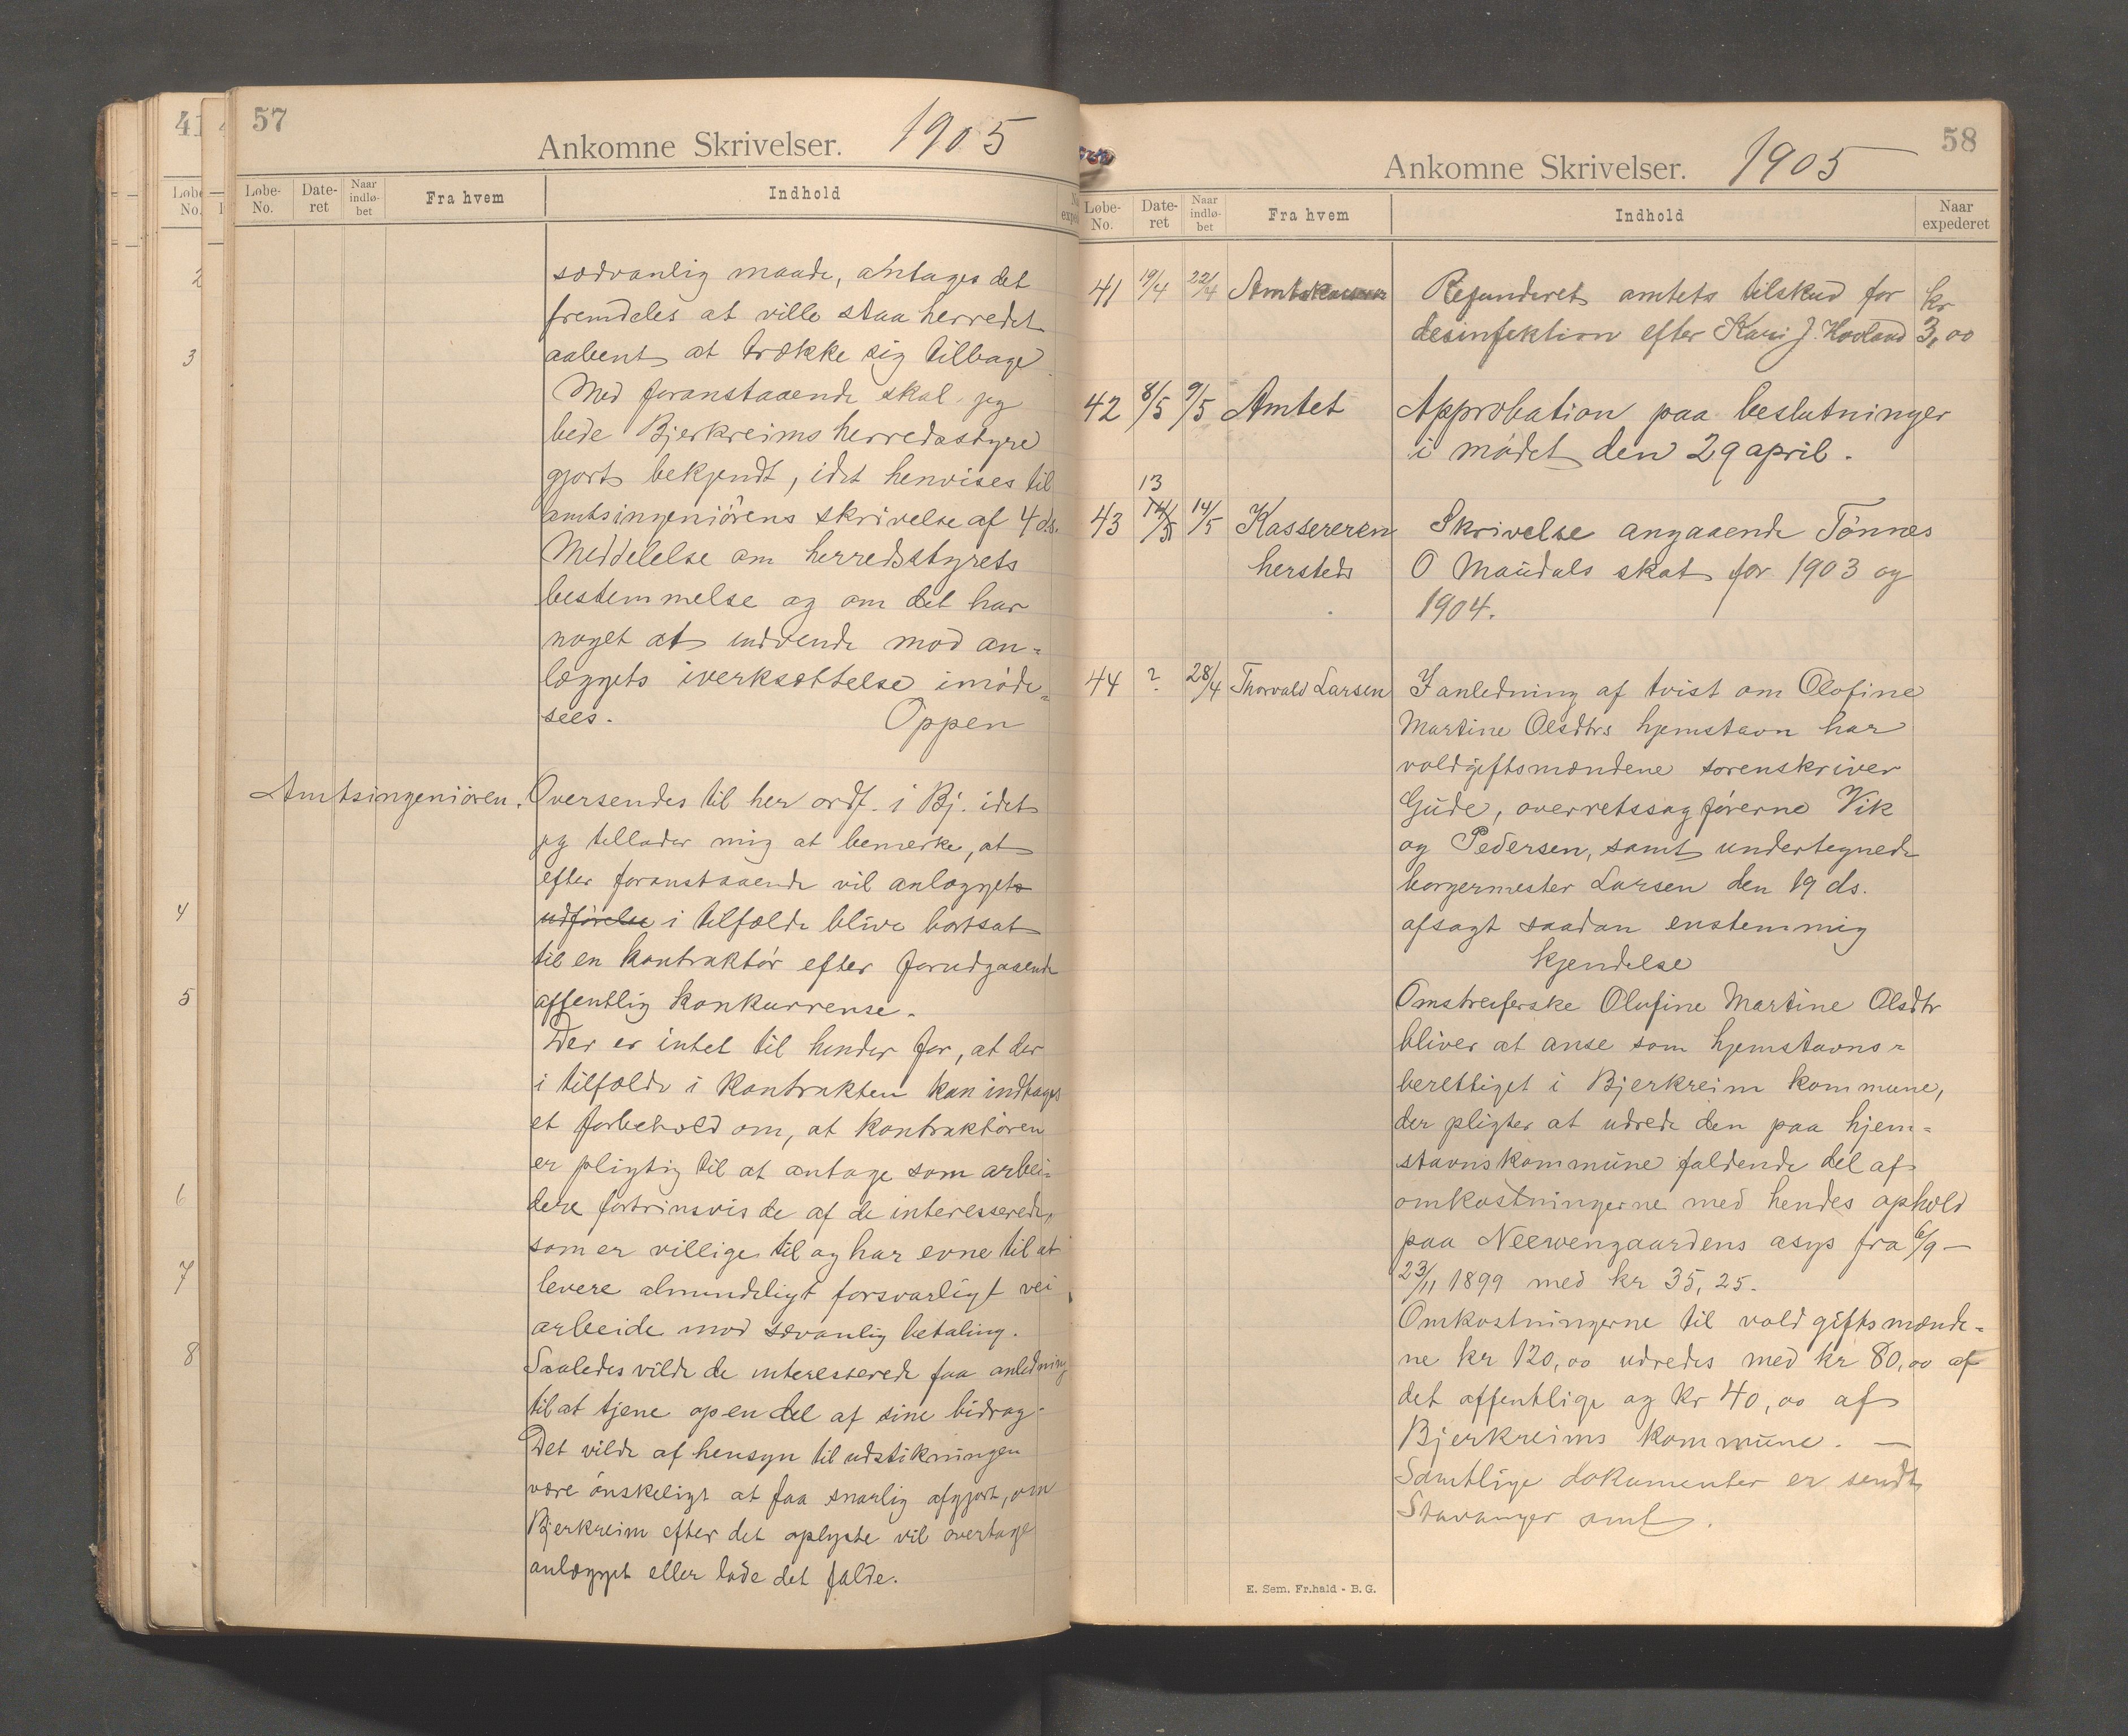 57
Ankomne Skrivelser. 1905
Løbe-No. Date-ret Naar indlø-bet Fra hvem Indhold
sædvanlig maade, antages det
fremdeles at ville staa herredet
aabent at trække sig tilbage.
Med foranstaaende skal jeg
bede Bjerkreims herredsstyre
gjort bekjendt, idet henvises til
amtsingeniörens skrivelse af 4 ds.
Meddelelse om herredsstyrets
bestemmelse og om det har
noget at indvende mod an-
læggets iverksættelse imøde-
sees. Oppen
Amtsingeniören. Oversendes til her ordf. i Bj. idet
jeg tillader mig at bemerke, at
efter foranstaaende vil anlægget
udførelse i tilfælde blive bortsat
til en kontraktør efter forudgaaende
offentlig konkurrense.
Der er intet til hinder for, at der
i tilfælde i kontrakten kan indtages
et forbehold om, at kontraktören
er pligtig til at antage som arbei-
dere fortrinsvis de af de interesserede,
som er villige til og har evne til at
levere almindeligt forsvarligt vei
arbeide mod sævanlig betaling.
Saaledes vilde de interesserede faa anledning
til at tjene op en del af sine bidrag.
Det vilde af hensyn til udstikningen
være ønskeligt at faa snarlig afgjort, om
Bjerkreim efter det oplyste vil overtage
anlægget eller lade det falde.
58
Ankomne Skrivelser. 1905
Løbe-No. Date-ret Naar indlø-bet Fra hvem Indhold Naar expederet
41 19/4 22/4 Amtskassen Refunderet amtets tilskud for kr
desinfektion efter Kari J. Hovland 3,00
42 8/5 9/5 Amtet Approbation paa beslutninger
i mödet den 29 april.
13
43 14/5 14/5 Kassereren Skrivelse angaaende Tönnes
hersteds O Maudals skat for 1903 og
1904.
44 ? 28/4 Thorvald Larsen I anledning af tvist om Olofine
Martine Olsdtrs hjemstavn har
voldgiftsmændene sorenskriver
Gude, overretssagförerne Vik
og Pedersen, samt undertegnede
borgermester Larsen den 19 ds.
afsagt saadan enstemmig
kjendelse
Omstreiferske Olufine Martine Olsdtr
bliver at anse som hjemstavns-
berettiget i Bjerkreim kommune,
der pligter at udrede den paa hjem-
stavnskommune faldende del af
omkostningerne med hendes ophold
paa Neevengaardens asys fra 6/9 —
23/11 1899 med kr 35,25.
Omkostningerne til voldgiftsmænde-
ne kr 120,00 udredes med kr 80,00 af
det offentlige og kr 40,00 af
Bjerkreims kommune. —
Samtlige dokumenter er sendt
Stavanger amt.
E. Sem. Fr.hald - B. G.